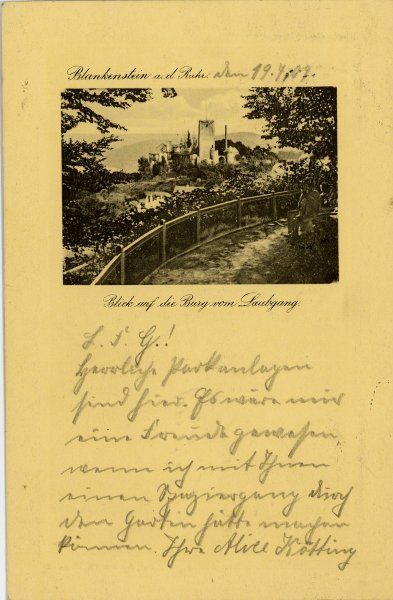 Blankenstein a. d. Ruhr. den 19.7.07.
Blick auf die Burg vom Laubgang.
L. F. G.!
Herrliche Parkanlagen
sind hier. Es wäre mir
eine Freude gewesen,
wenn ich mit Ihnen
einen Spaziergang durch
den Garten hätte machen
können. Ihre Alice Kötting